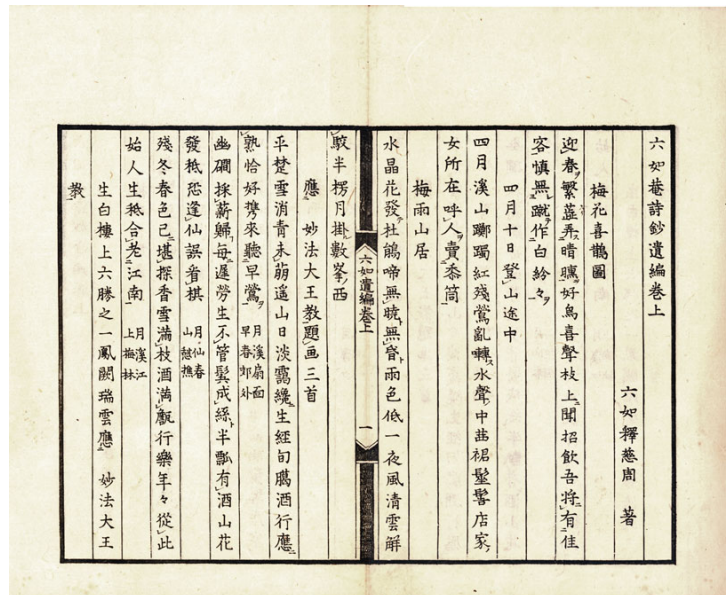 六如菴詩鈔遺編卷上
六如釋慈周 著
梅花喜鵲圖
迎春繁蕋弄晴曛好鳥喜聲枝上聞招飲吾將有佳
客慎無蹴作白紛々
四月十日登山途中
四月溪山躑躅紅殘鶯亂囀水聲中茜裙髽髻店家
女所在呼人賣黍筒
梅雨山居
水晶花發杜鵑啼無曉無昏雨色低一夜風清雲解
駮半楞月掛數峯西
應 妙法大王教題画三首
平楚雪消青未萠遥山日淡靄纔生經旬臈酒行應
熟恰好携來聽早鶯 月溪扇面早春郊外
幽磵採薪歸每遲勞生不管鬂成絲半瓢有酒山花
發秪恐逢仙誤看棋 月仙春山憇樵
殘冬春色已堪探香雪滿枝酒滿甔行樂年々從此
始人生秪合老江南 月漢江上梅林
生白樓上六勝之一鳳闕瑞雲應 妙法大王
教
六如遺編卷上
一